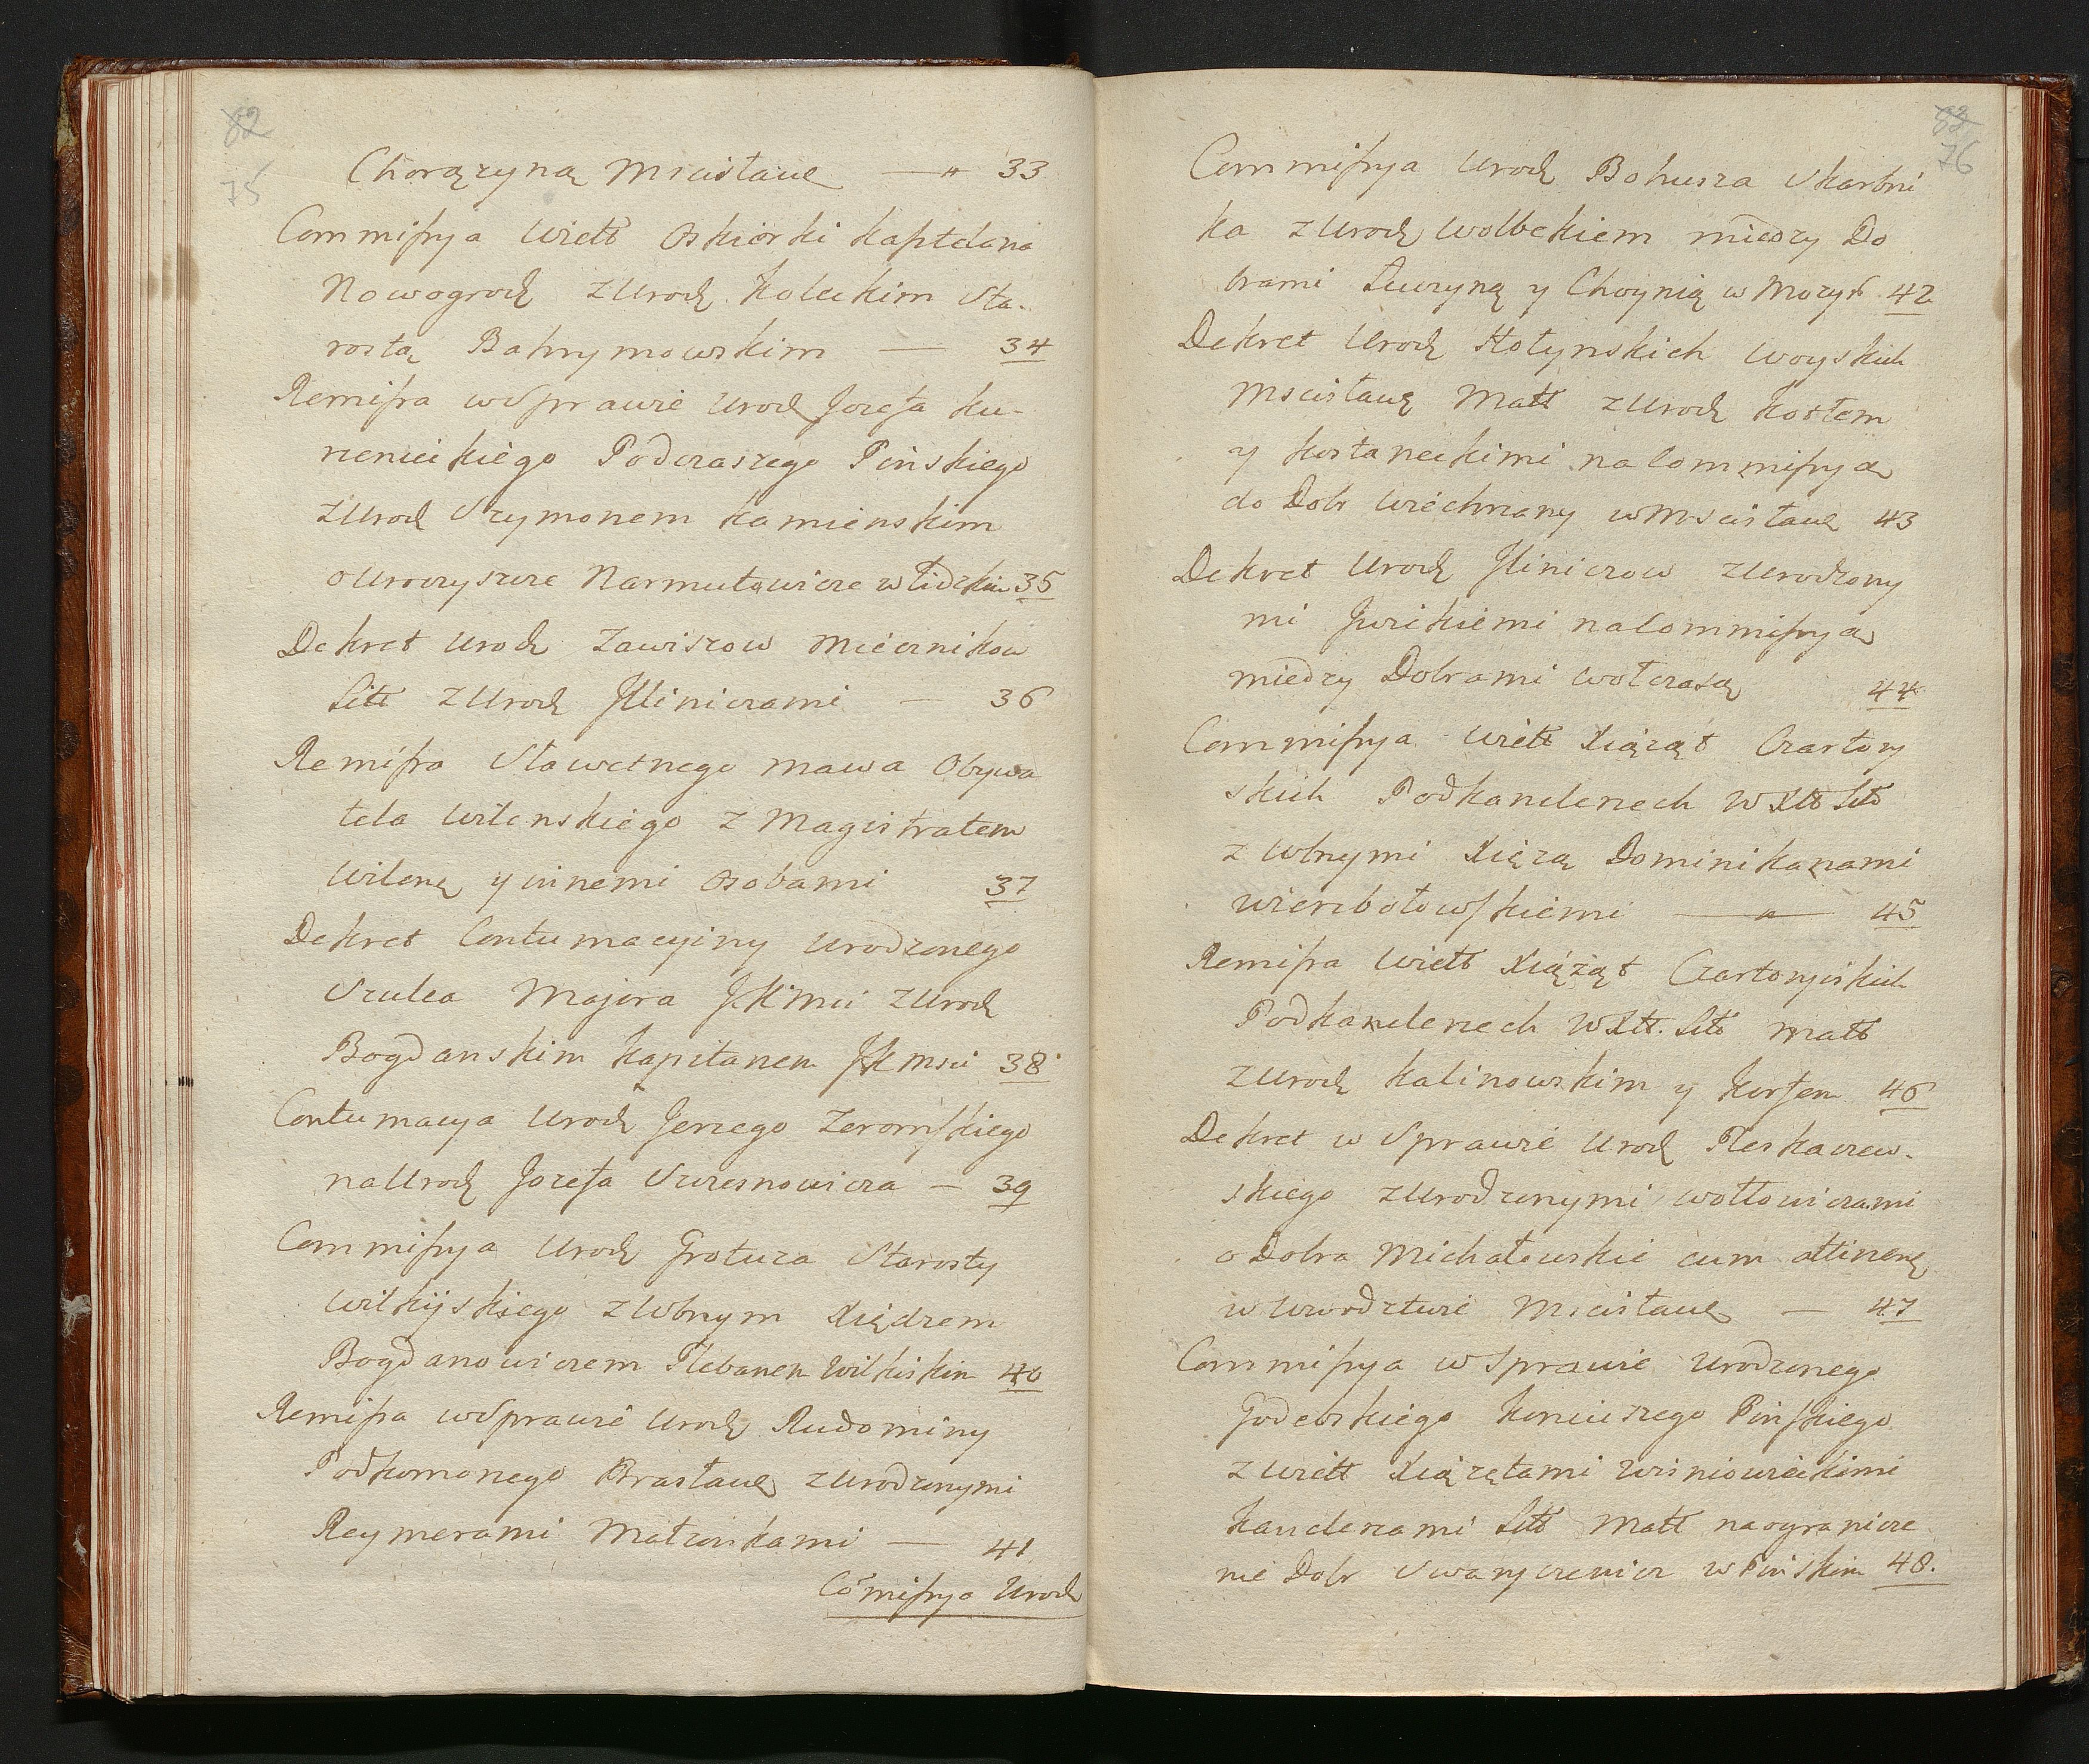 82
75
Chorązyną Mscisławę — " 33
Commissya Wiełł Oskiórki Kasztelana
Nowogrodz z Urodz Koleckim Sta-
rostą Bahrymowskim — 34
Remissa w Sprawie Urodz Jozefa Ku-
rzenieckiego Podczaszego Pinskiego
z Urodz Szymonem Kamienskim
o Uroczyszcze Narmutowicze w Lidzkim 35
Dekret Urodz Zawiszow Miecznikow
Litt z Urodz Jliniczami — 36
Remissa Sławetnego Mawa Obywa
tela Wilenskiego z Magistratem
Wilenę y innemi osobami 37
Dekret Contumacyiny Urodzonego
Szulca Majora JKMci z Urodz
Bogdanskim Kapitanem JKMsci 38
Contumacya Urodz Jerzego Zeromskiego
na Urodz Jozefa Szczesnowicza — 39
Commissya Urodz Grotuza Starosty
Wilkijskiego z Wbnym Xiędzem
Bogdanowiczem Plebanem Wilkiskim 40
Remissa w Sprawie Urodz Rudominy
Podkomorzego Brasławę z Urodzonymi
Reymerami Małzonkami — 41
Comissya Urodz
83
76
Commissya Urodz Bohusza Skarbni
ka z Urodz Wolbekiem miedzy Do
brami Luczyną y Choynią w Mozyr 42
Dekret Urodz Hołynskich Woyskich
Mscisławę Małł z Urodz Kosłem
y Kostaneckimi na Commissyą
do Dobr Wiechnany w Mscisławę 43
Dekret Urodz Jliniczow z Urodzony
mi Jurikiemi na Commissyą
miedzy Dobrami Wołczasą 44
Commissya Wiełł Xiąząt Czartory
skich Podkanclerzech W Xtt Litt
z Wbnymi Xięzą Dominikanami
Wierzbołowskiemi — " — 45
Remissa Wiełł Xiążąt Czartoryiskich
Podkanclerzech W Xtt. Litt Małł
z Urodz Kalinowskim y Korsem 46
Dekret w Sprawie Urodz Pleskaczew-
skiego z Urodzonymi Wołłowiczami
o Dobra Michałowskie cum attinenę
w Wwodztwie Mscisławę — 47
Commissya w Sprawie Urodzonego
Godebskiego Koniuszego Pinskiego
z Wiełł Xiązętami Wisniowieckimi
Kanclerzami Litt Małł na ogranicze
nie Dobr Swaryczewicz w Pinskim 48.